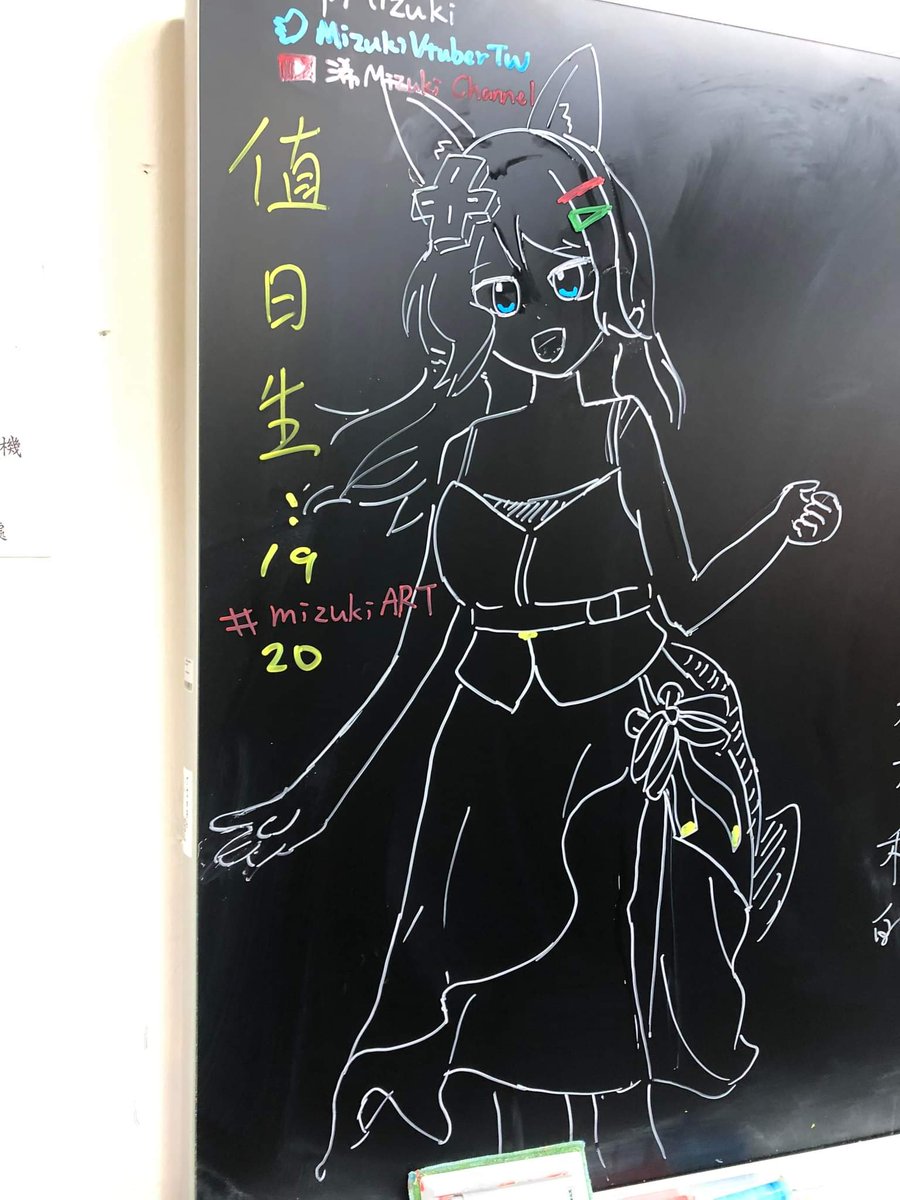 Mizuki
MizukiVtuberTW
浠Mizuki Channel
值日生:
19
#mizukiART
20
機